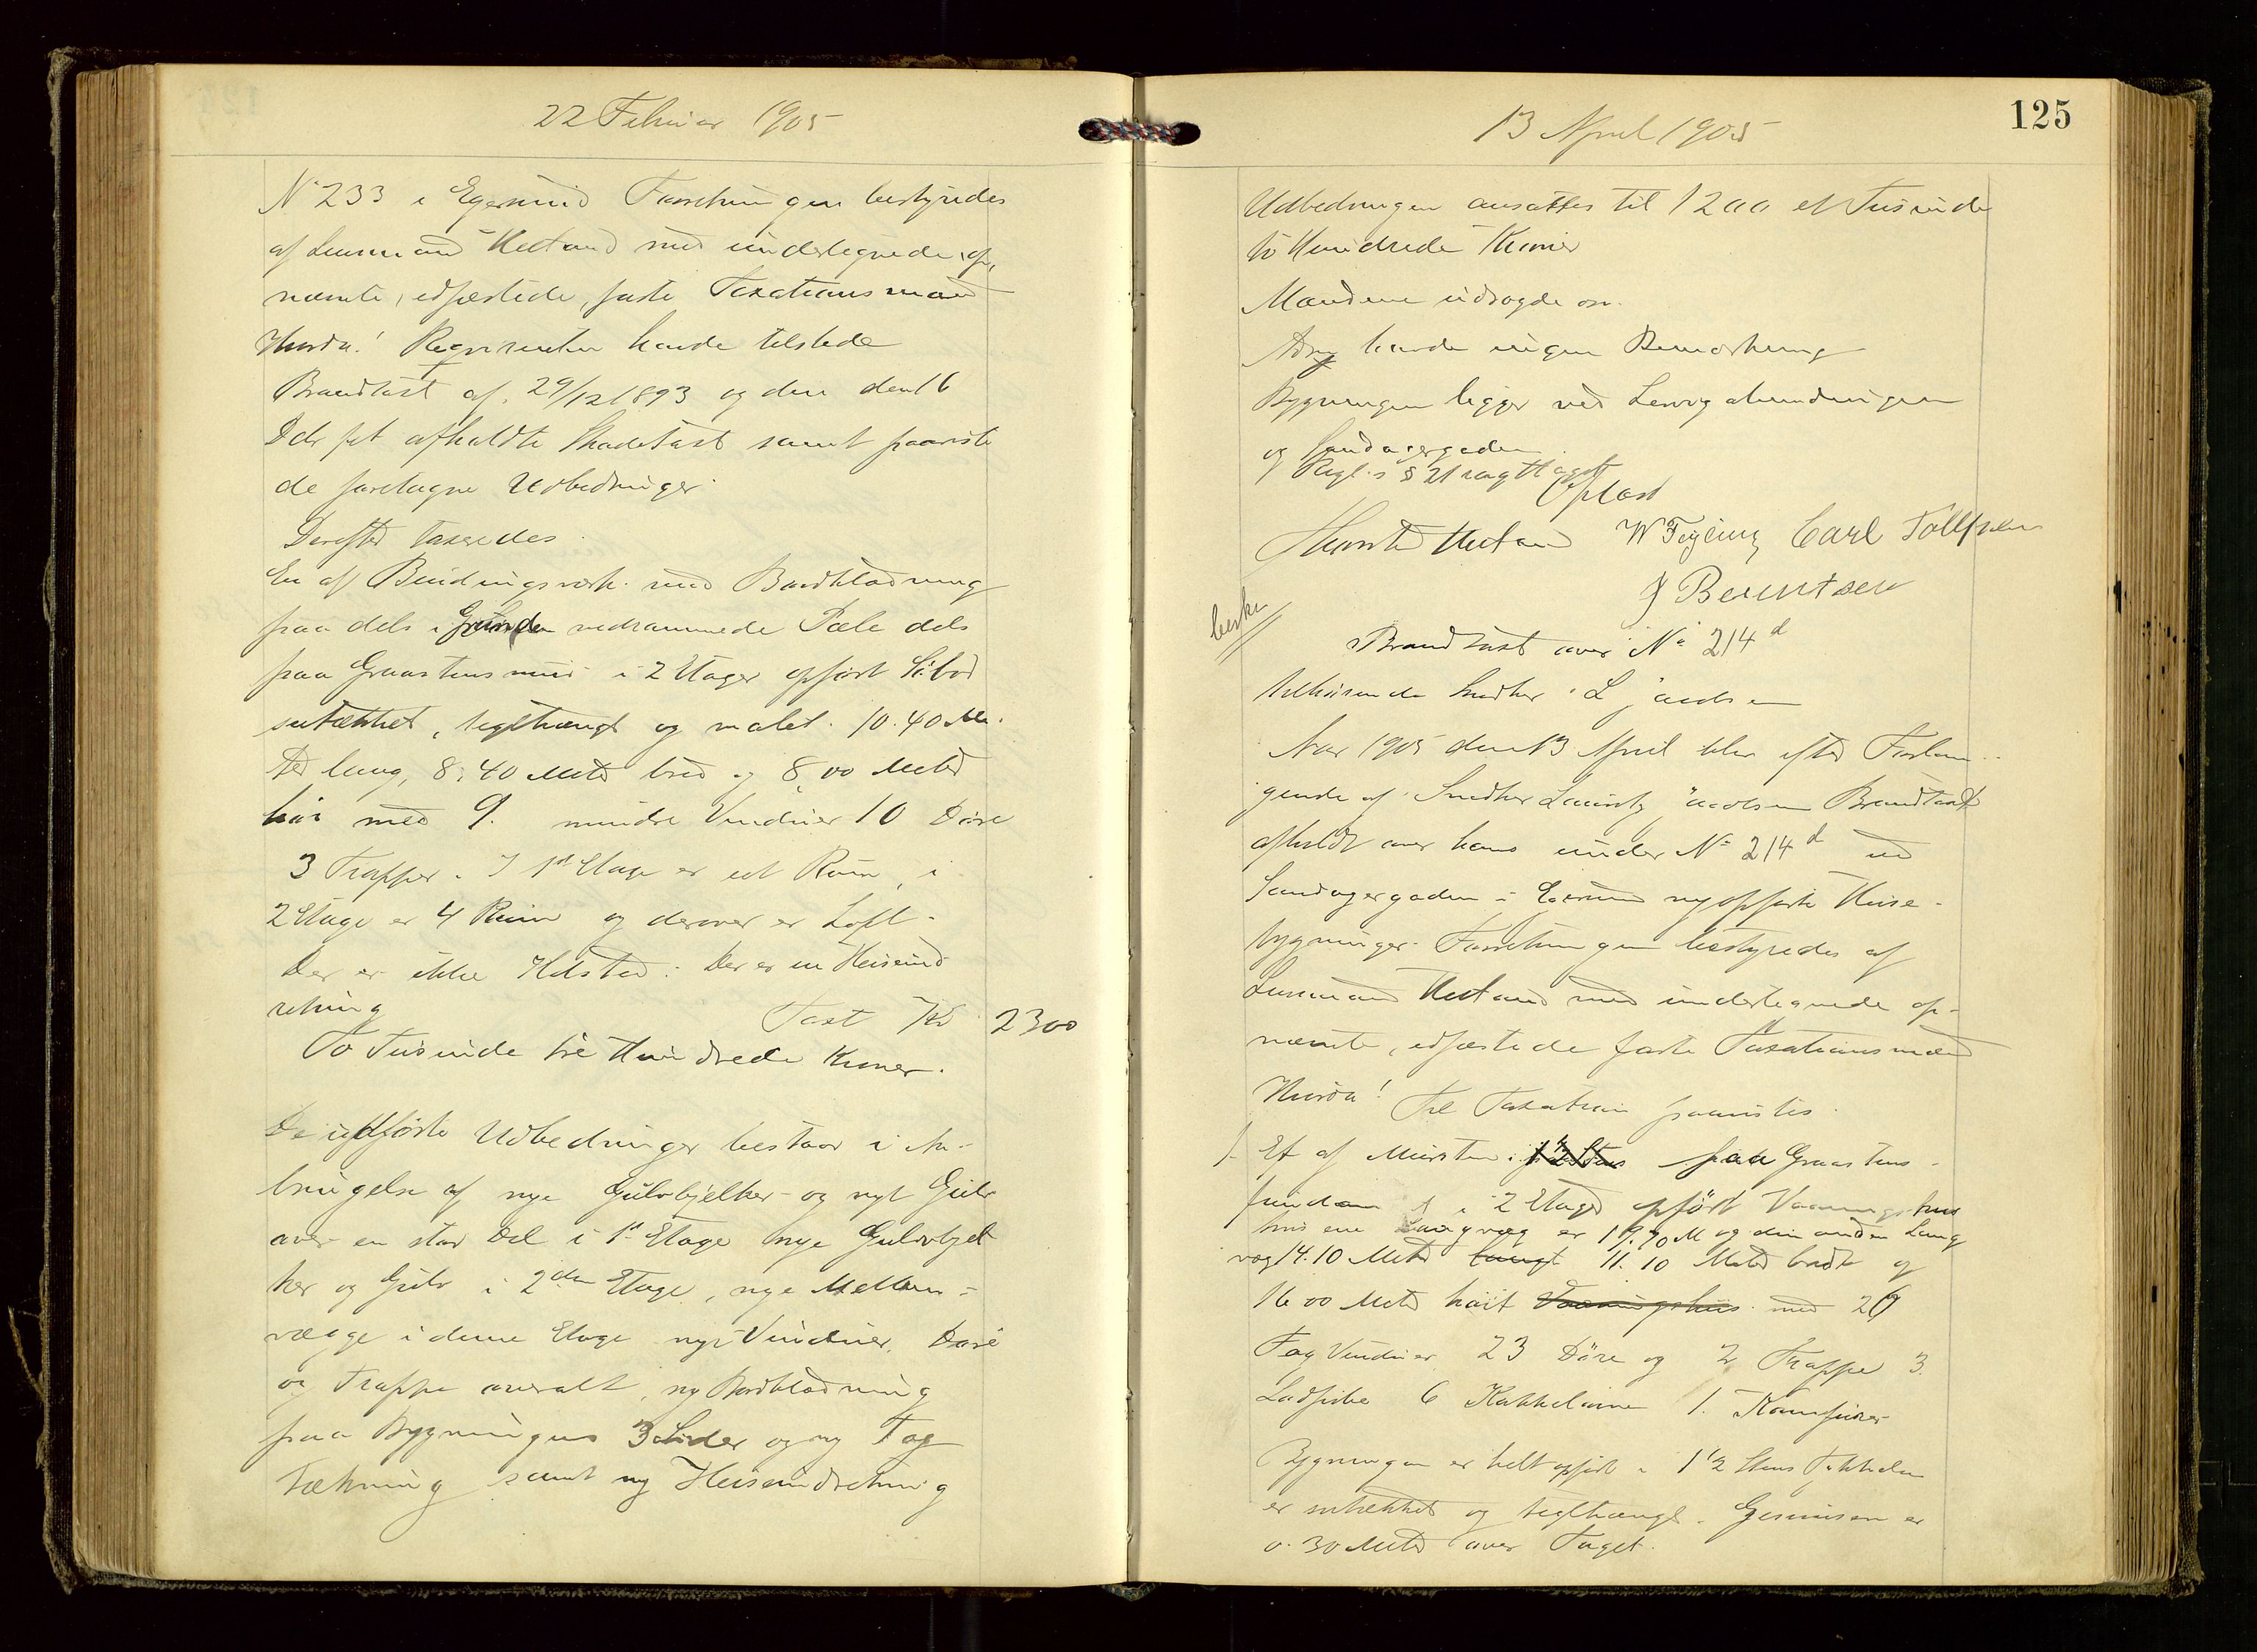 22 Februar 1905
No 233 i Egersund Forretningen bestyredes
af Lensmand Hetland med undertegnede, op,
nævnte, edfæstede, faste Taxationsmænd
Hvorda! Requirenten havde tilstede
Brandtaxt af 29/12 1893 og den den 16
Ds. afholdte Skadetaxt samt paaviste
de foretagne Udbedringer.
Derefter taxeredes.
En af Bindingsværk med Bordklædning
paa dels i Grunden nedrammede Pæle dels
paa Graastensmur i 2 Etager opført Søbod
sutækket, teglhængt og malet. 10.40 Me
ter lang, 8.40 Meter bred og 8,00 Meter
høi med 9. mindre Vinduer 10 Døre
3 Trapper. I 1st Etage er et Rum, i
2 Etage er 4 Rum og derover er Loft.
Der er ikke Ildsted. Der er en Heiseind
retning Taxt Kr 2300
To Tusinde tre Hundrede Kroner.
De udførte Udbedringer bestaar i An-
bringelse af nye Gulvbjelker og nyt Gulv
over en stor Del i 1st Etage nye Gulvbjel
ker og Gulv i 2den Etage, nye Mellem-
vægge i denne Etage nye Vinduer, Døre
og Trapper overalt, ny Bordklædning
paa Bygningens 3 Sider og ny Tag
tækning samt ny Heiseindretning
125
13 April 1905
Udbedringen ansattes til 1200 et Tusinde
to Hundrede Kroner
Mændene udsagde osv.
havde ingen Bemærkning
Bygningen ligger ved Lervigabundningen
og Sandagergaden.
Regl.s § 21 iagttaget
Oplæst
Hetland W Feyling Carl Tollefsen
J Berntsen
Brandtaxt over No 214d
tilhørende Snedker L
Aar 1905 den 13 April blev efter Forlan-
gende af Snedker Lauritz Brandtaxt
afholdt over hans under No 214d ved
Sandagergaden i Egersund nyopførte Huse-
bygninger. Forretningen bestyredes af
Lensmand Hetland med undertegnede op-
nævnte, edfæstede faste Taxationsmænd
Hvorda! Til Taxation paavistes.
1. Et af Mursten paa Graastens-
fundament i 2 Etager opført Vaaningshus
hvis ene Langvæg er M og den anden Lang
væg 14.10 Meter langt 11.10 Meter bredt og
16 00 Meter høit Vaaningshus. med 26
Fag Vinduer 23 Døre og 2 Trapper 3
6 Kakkelovne 1. Komfurer
Bygningen er helt opført i 1½ Stens Tykkelse
er sutækket og teglhængt. Gesimsen er
0.30 Meter over Taget.